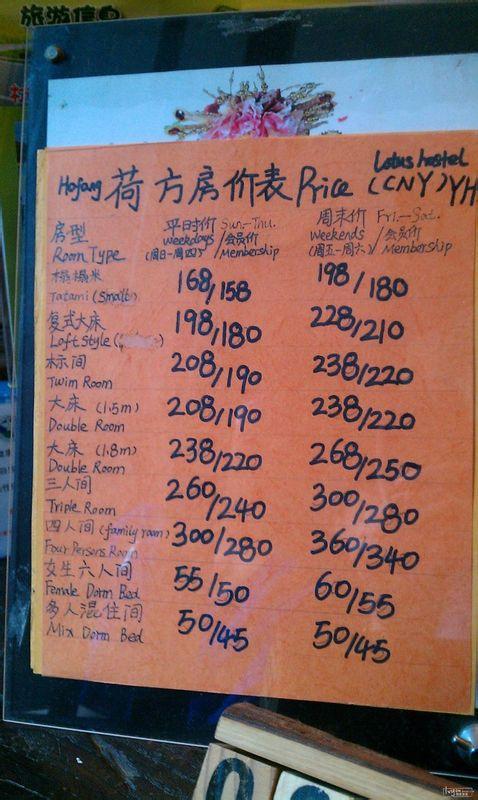 旅游信息
Lotus hostel
Hofang 荷方房价表 Price (CNY) YH
房型 平日价 Sun.-Thu. 周末价 Fri.-Sat.
Room Type weekdays /会员价 Weekends /会员价
(周日-周四) /Membership (周五-周六) /Membership
榻榻米 168/158 198/180
Tatami (Small)
复式大床 198/180 228/210
Loft Style (
标间 208/190 238/220
Twim Room
大床 (1.5m) 208/190 238/220
Double Room
大床 (1.8m) 238/220 268/250
Double Room
三人间 260/240 300/280
Triple Room
四人间 (family room) 300/280 360/340
Four Persons Room
女生六人间 55/50 60/55
Female Dorm Bed
多人混住间 50/45 50/45
Mix Dorm Bed